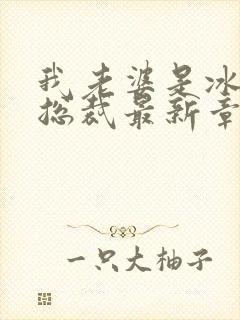 我老婆是冰
总裁最新章
一只大柚子